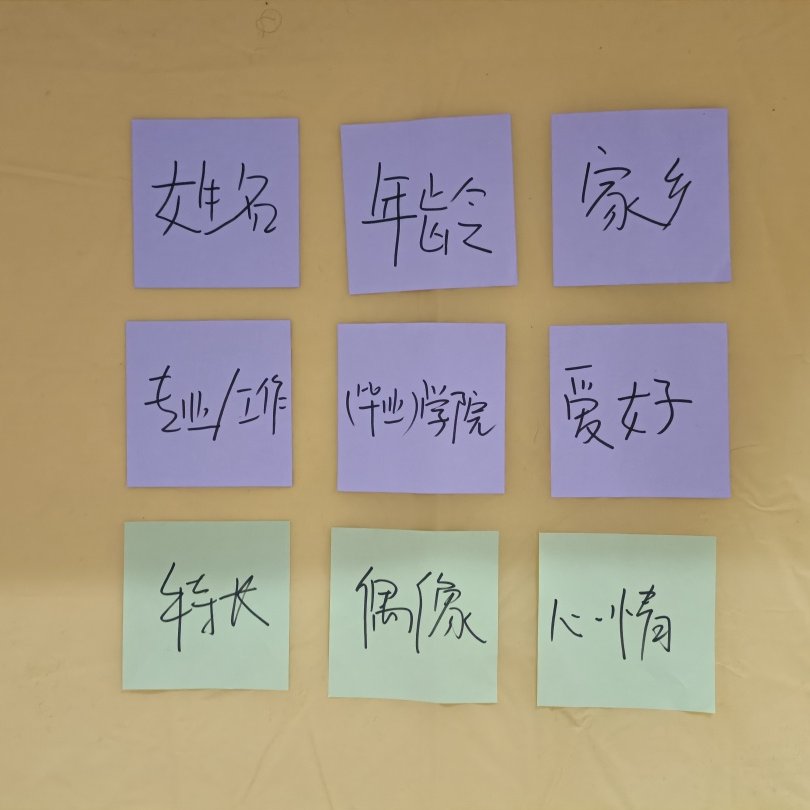 姓名
年龄
家乡
专业/工作
(毕业)学院
爱好
特长
偶像
心情